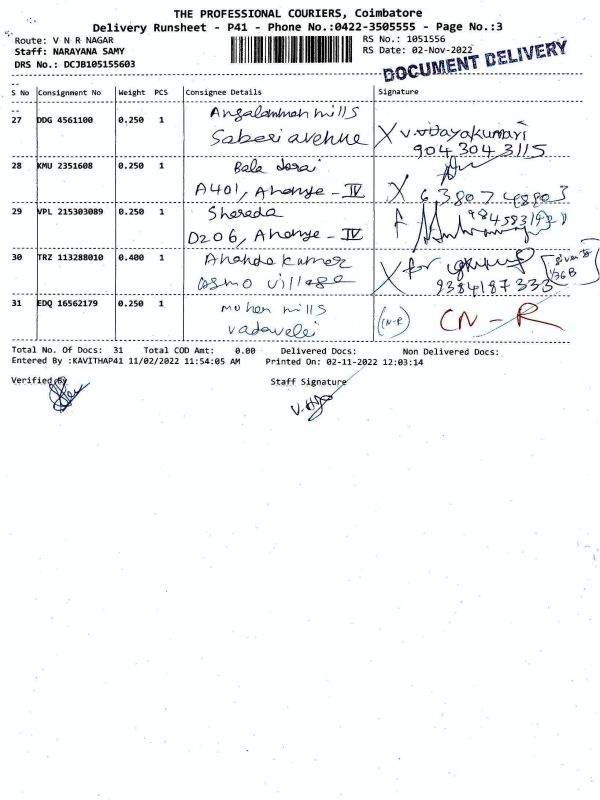 THE PROFESSIONAL COURIERS, Coimbatore
Delivery Runsheet - P41 - Phone No.:0422-3505555 - Page No.:3
Route: V N R NAGAR
RS No.: 1051556
Staff: NARAYANA SAMY
RS Date: 02-Nov-2022
DRS No.: DCJB105155603
DOCUMENT DELIVERY
S No Consignment No Weight PCS Consignee Details Signature
27 DDG 4561100 0.250 1 Angalamman mills
Saberi avenue X V.Vijayakumari
904 304 3115
28 KMU 2351608 0.250 1 Bala dorai
A401, Ananye - IV X 6380748903
29 VPL 215303089 0.250 1 Shereda
D206, Ananye - IV
30 TRZ 113288010 0.400 1 Ananda kumar
cosmo village X for
9384187333
31 EDQ 16562179 0.250 1 Mohen mills
vadaveli (CN-R) CN-R
Total No. Of Docs: 31 Total COD Amt: 0.00 Delivered Docs: Non Delivered Docs:
Entered By :KAVITHAP41 11/02/2022 11:54:05 AM Printed On: 02-11-2022 12:03:14
Verified By
Staff Signature